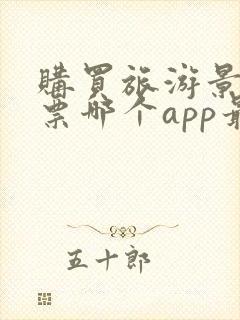 購買旅游景
票哪个app最
五十郎